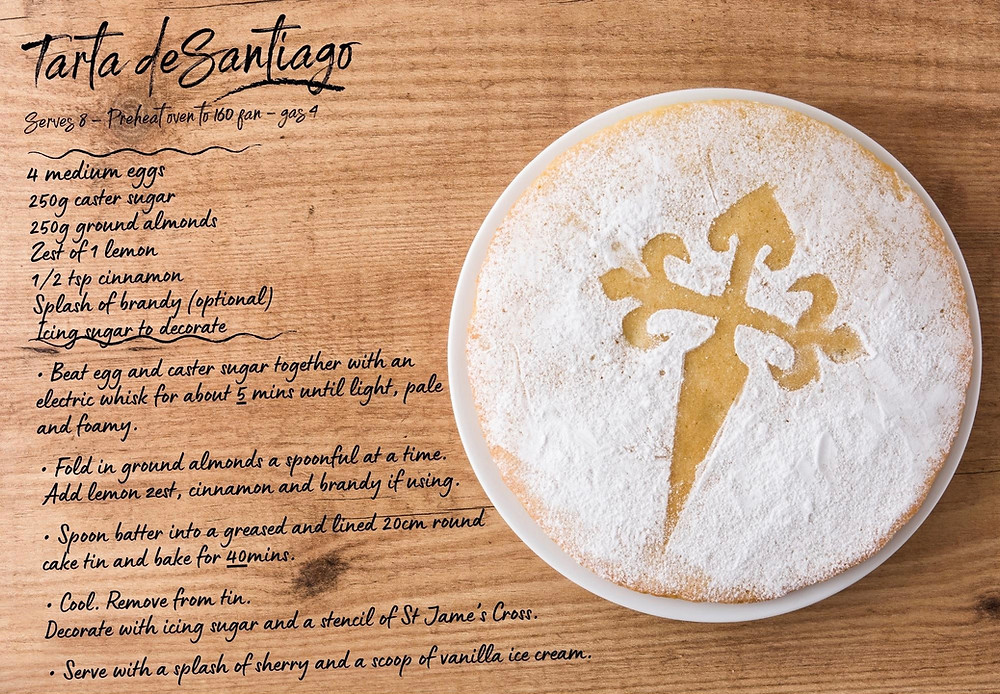 Tarta de Santiago
Serves 8 - Preheat oven to 160 fan - gas 4
4 medium eggs
250g caster sugar
250g ground almonds
Zest of 1 lemon
1/2 tsp cinnamon
Splash of brandy (optional)
Icing sugar to decorate
• Beat egg and caster sugar together with an
electric whisk for about 5 mins until light, pale
and foamy.
• Fold in ground almonds a spoonful at a time.
Add lemon zest, cinnamon and brandy if using.
• Spoon batter into a greased and lined 20cm round
cake tin and bake for 40mins.
• Cool. Remove from tin.
Decorate with icing sugar and a stencil of St Jame's Cross.
• Serve with a splash of sherry and a scoop of vanilla ice cream.